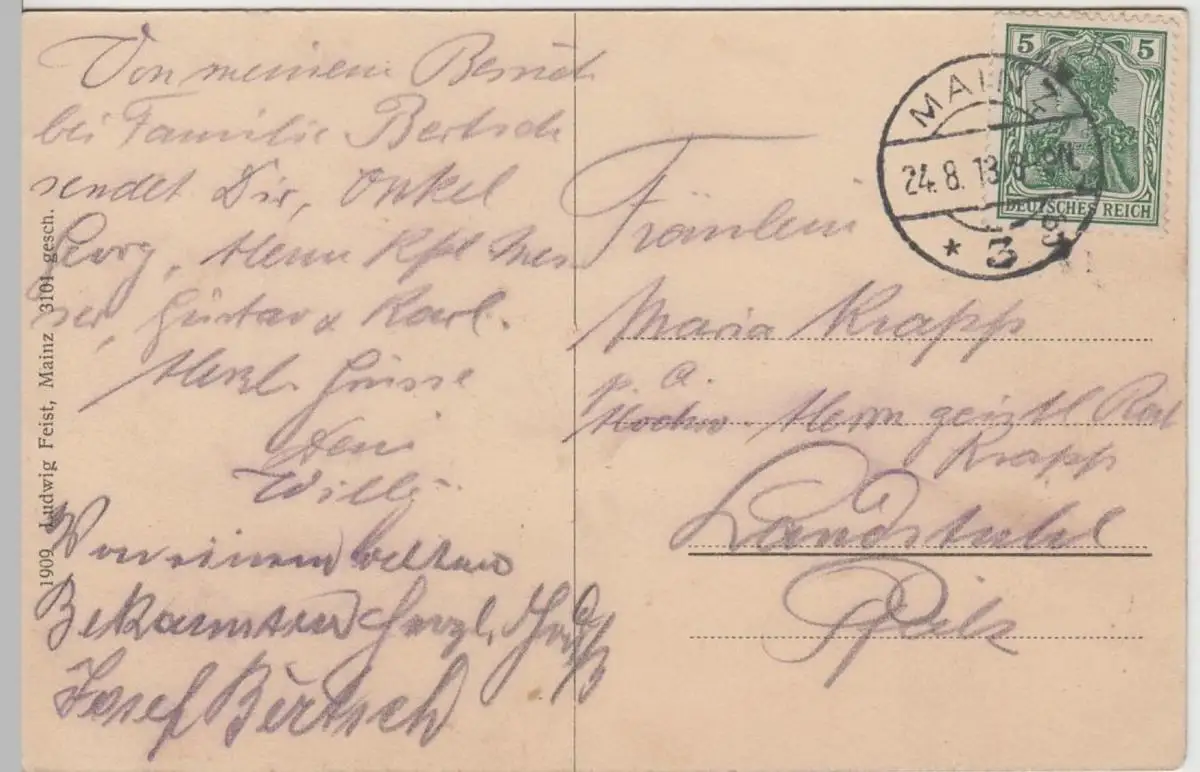 Von meinem Besuch
bei Familie Bertsch
sendet Dir, Onkel
Georg, Herrn Kpl Mes
ser, Gustav & Karl.
Herzl. Grüsse
Dein
Willi
Von einem
Bekannten Herzl. Gruß
Josef Bertsch
1909 Ludwig Feist, Mainz 3101 gesch.
5 5
DEUTSCHES REICH
MAINZ
24.8.13.8-9N.
* 3
Fräulein
Maria Krapp
p. a.
Hochw. Herrn geistl Rat
Krapp
Landstuhl
Pfalz